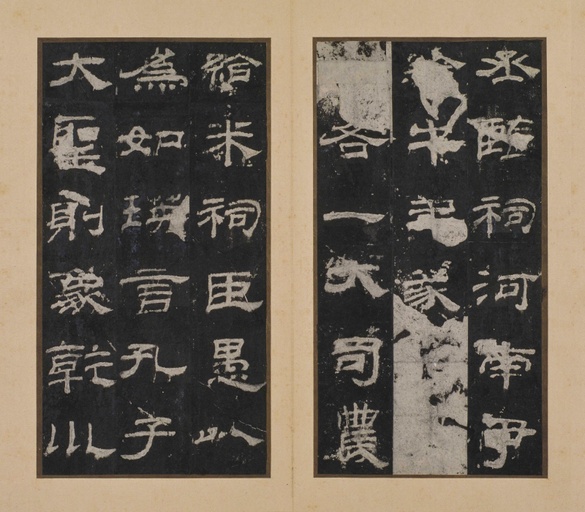 丞監祠河南尹
給牛羊豕
各一大司農
給米祠臣愚以
為如瑛言孔子
大聖則象乾巛